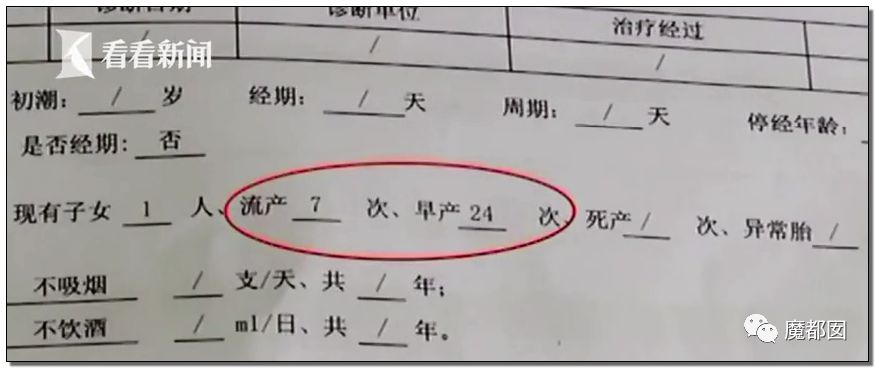 诊断日期 诊断单位 治疗经过
/ / /
看看新闻
初潮： / 岁 经期： / 天 周期： / 天 停经年龄：
是否经期： 否
现有子女 1 人、流产 7 次、早产 24 次、死产 / 次、异常胎 /
不吸烟 / 支/天、共 / 年；
不饮酒 / ml/日、共 / 年。
魔都囡